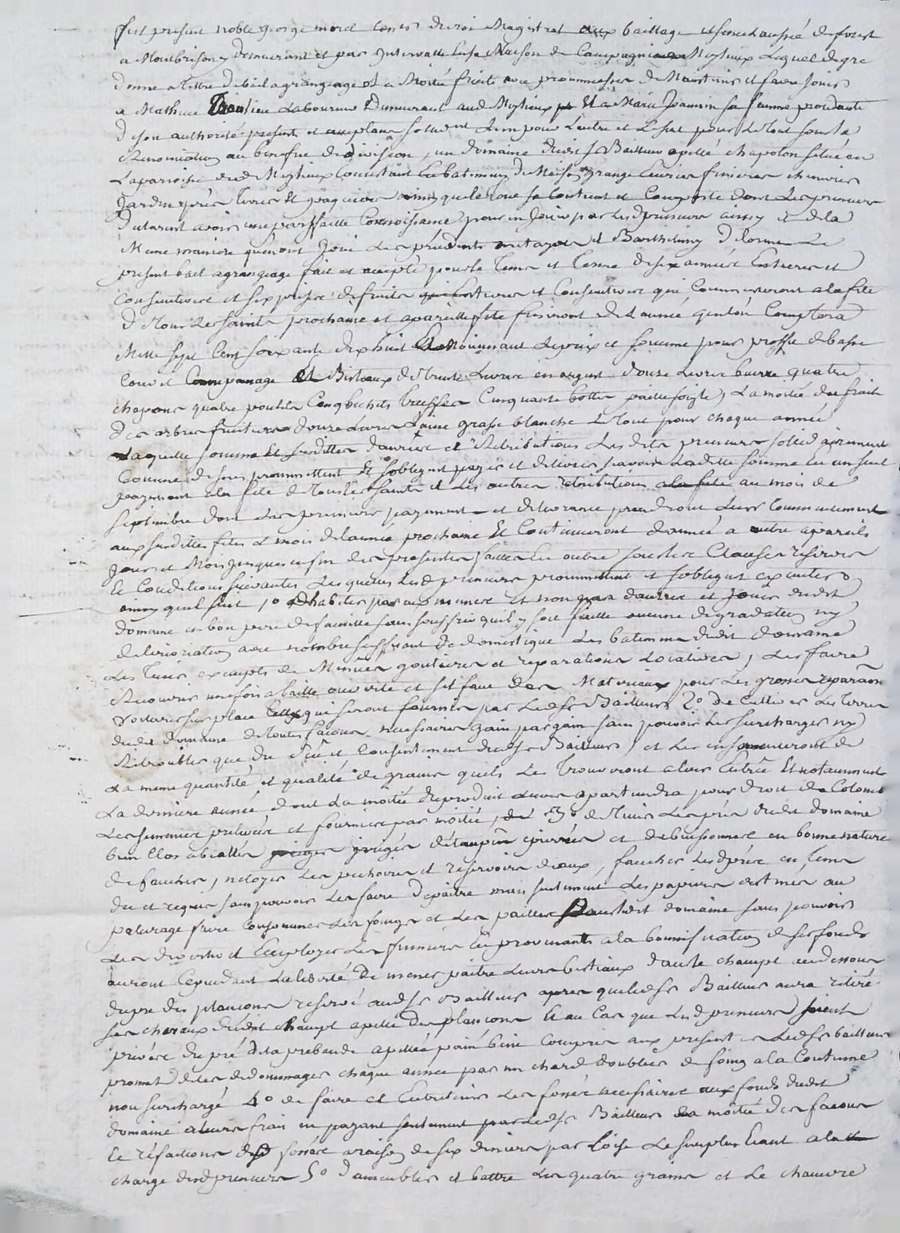 fut present noble george morel Coner du roi Magistrat aux bailliage et senechaussée de forest
a Montbrison y demeurant et par Intervalle En sa Maison de Campagne a Mizérieux Lequel de gré
donne a titre de bail a grangeage et a Moitié fruits avec promesses de Maintenir et faire Jouir
a Mathieu Laboureur demeurant aud et a Marie Joannin sa femme procédante
de son authorité presents et acceptans solidairement L'un pour L'autre et L'seul pour le tout sous la
Renonciation au benefice de division, un domaine dudit Sr Bailleur apellé chapolon situé en
La parroisse dud Consistant En batiments de Maison grange Ecuries feniere chenevier
Jardin prés Terres et paquiers ainsi que le tout se Contient et Comporte dont Les preneurs
d'utarent avoir une parfaitte Connoissance pour en Jouir par Lesd preneurs ainsy et de la
Meme maniere qu'en ont Joui Les precedents et Barthelemy delorme Le
present bail a grangeage fait et accepté pour le Tems et Terme de six années Entieres et
Consecutives et six prises de fruits Entieres et Consecutives qui Commenceront a la fete
de Tous Les saints prochaine et a pareille fete finiront de L'année qu'on Comptera
Mille sept Cent soixante dix huit Moyennant Le prix et somme pour profit de basse
Cour et Compenage et Bestiaux de trente Livres en argent douze Livres beurre quatre
chapons quatre poulets Cinq bichets truffes Cinquante bottes paille soigle, La moitié des fruits
des arbres fruitiers douze Livres Laine grasse blanche Le tout pour chaque année
Laquelle somme et susdittes danrées et Retributions Lesdits preneurs solidairement
Comme dessus promettent et s'obligent payer et delivrer scavoir Laditte somme En un seul
payement a la fete de Tous Les saints et Les autres retributions au mois de
septembre dont Les premiers payement et delivrance prendront Leurs Commencement
aux susdittes fetes et mois de L'année prochaine Et Continueront d'année a autre a pareils
Jours et Mois Jusques en fin des presentes faittes En outre sous Les Clauses reserves
Et Conditions suivantes Lesquelles Lesd preneurs promettent et s'obligent executer
ainsy qu'il suit 1o d'habiter par eux memes et non par d'autres et Jouir dudit
domaine en bon pere de famille sans souffrir qu'il y soit faitte aucune degradation ny
deterioration avec nombre suffisant de domestique Les batiments dudit domaine
Les tenir exempts de Menues goutieres et reparations Locatives, Les faire
Recouvrir une fois a taille ouverte et fait faire Des Materiaux pour Les grosses reparaõn
voiturés sur place Ceux qui seront fournis par Led Sr Bailleur 2o de Cultiver Les Terres
dudit domaine de toutes facons necessaires gain par gain sans pouvoir Les surcharger ny
Retroubles que du Gré et Consentement dud Sr Bailleur, et Les ensemenceront de
La meme quantité et qualité de grains qu'ils Les trouveront a leur Entrée Et notamment
La derniere année dont La moitié du produit Leur apartiendra pour droit de Colonet
Les semences prelevées et fournies par moitié, 3o de Tenir Les prés dudit domaine
bien Clos etaupiné épierrés et debuissonnés en bonne nature
de faucher, netoyer Les pechoires et reservoirs d'eaux, faucher Lesd prés en tems
du et requis sans pouvoir Les faire depaitre mais seulement Les paquiers destinés au
paturage faire Consommer Les foings et Les pailles dans Led domaine sans pouvoir
Les divertir et Employer Les fumiers En provenants a la bonnification de ses fonds
auront Cependant La liberté de mener paitre Leurs bestiaux dans Le champt au dessous
du pre des plancons reservé aud Sr Bailleur apres que Led Sr Bailleur aura retiré
ses chevaux dudit champt apellé des plancons Et au Cas que Lesd preneurs soient
privés du pré de la prebende apellée pain béni Compris aux presentes Led Sr bailleur
promet de Les dedommager chaque année par un chard doublier de foing a la Coutume
non surchargé 4o de faire et Entretenir Les fossés necessaires aux fonds dudit
domaine a leurs frais en payant seulement par Led Sr Bailleur La moitié des facons
Et refactions desd fossés a raison de six deniers par toise Le surplus Etant a la
charge desd preneurs 5o d'ameubler et battre Les quatre grains et Le chanvre